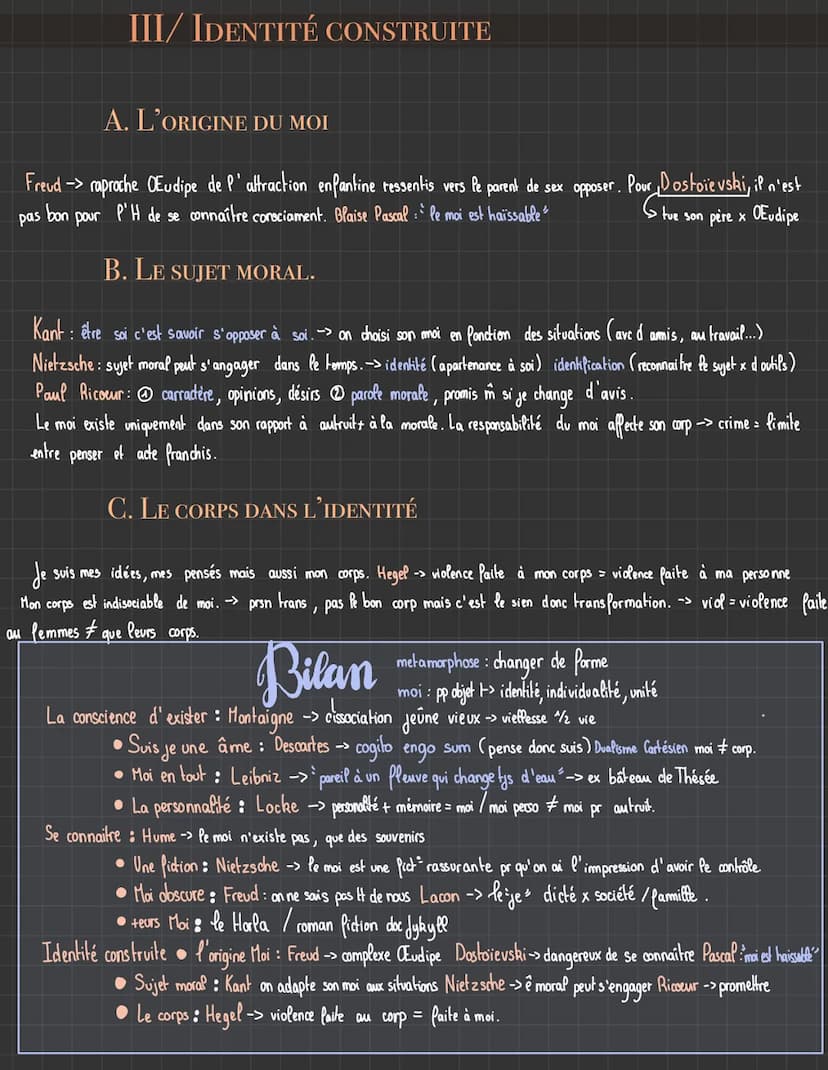 III/ Identité construite
A. L'origine du moi
Freud -> raproche Œudipe de l'attraction enfantine ressentis vers le parent de sex opposer. Pour Dostoïevski, il n'est
pas bon pour l'H de se connaître consciament. Blaise Pascal : "le moi est haïssable" ↳ tue son père x Œudipe
B. Le sujet moral.
Kant : être soi c'est savoir s'opposer à soi. -> on choisi son moi en fonction des situations (avc d amis, au travail...)
Nietzsche : sujet moral peut s'angager dans le temps. -> identité (apartenance à soi) identification (reconnaitre le sujet x d outils)
Paul Ricoeur : ① carradère, opinions, désirs ② parole morale, promis m̂ si je change d'avis.
Le moi existe uniquement dans son rapport à autruit + à la morale. La responsabilité du moi affecte son corp -> crime = limite
entre penser et acte franchis.
C. Le corps dans l'identité
Je suis mes idées, mes pensés mais aussi mon corps. Hegel -> violence faite à mon corps = violence faite à ma personne
Mon corps est indisociable de moi. -> prsn trans, pas le bon corp mais c'est le sien donc transformation. -> viol = violence faite
au femmes ≠ que leurs corps.
Bilan
metamorphose : changer de forme
moi : pp objet |-> identité, individualité, unité
La conscience d'exister : Montaigne -> dissociation jeûne vieux -> vieffesse ½ vie
• Suis je une âme : Descartes -> cogito engo sum (pense donc suis) Dualisme Cartésien moi ≠ corp.
• Moi en tout : Leibniz -> "pareil à un fleuve qui change tjs d'eau" -> ex bâteau de Thésée
• La personnalité : Locke -> personalité + mémoire = moi / moi perso ≠ moi pr autruit.
Se connaitre : Hume -> le moi n'existe pas, que des souvenirs
• Une fiction : Nietzsche -> le moi est une fict° rassurante pr qu'on ai l'impression d'avoir le contrôle
• Moi obscure : Freud : on ne sais pas tt de nous Lacon -> "le je" dicté x société / famille.
• +eurs Moi : le Horla / roman fiction doc Jykyll
Identité construite • l'origine Moi : Freud -> complexe Œudipe Dostoïevski -> dangereux de se connaître Pascal : "moi est haissable"
• Sujet moral : Kant on adapte son moi aux situations Nietzsche -> ê moral peut s'engager Ricoeur -> promettre
• Le corps : Hegel -> violence faite au corp = faite à moi.